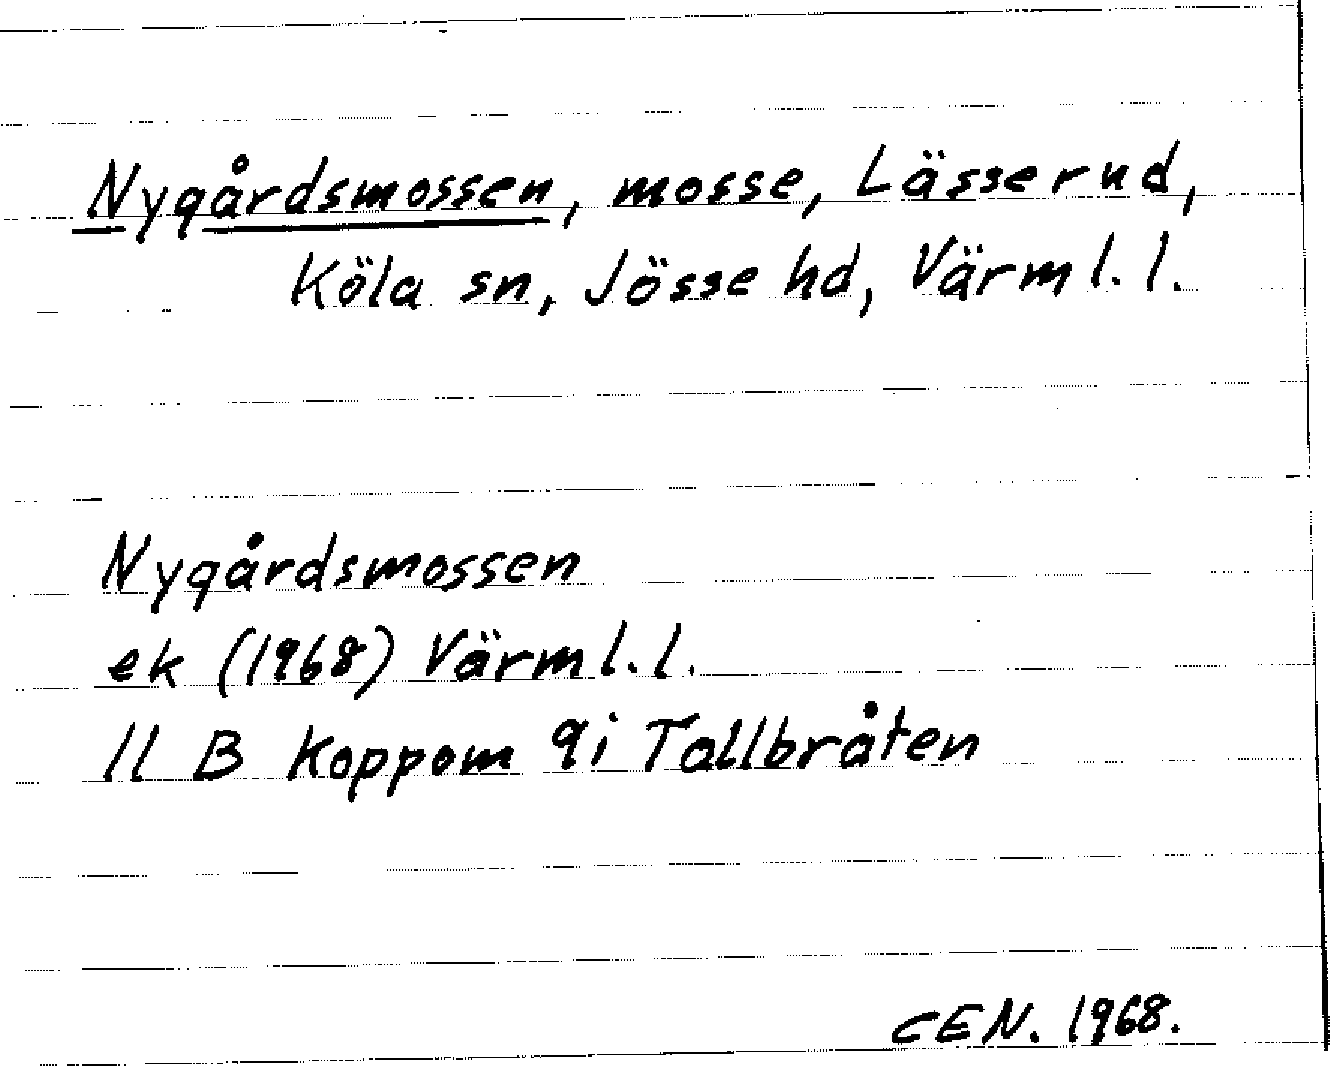 Nygårdsmossen, mosse, Lässerud,
Köla sn, Jösse hd, Värml. l.
Nygårdsmossen
ek (1968) Värml. l.
11 B Koppom 9i Tallbråten
CEN. 1968.